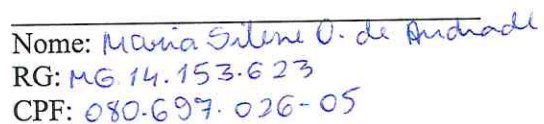 Nome: Maria Silene O. de Andrade
RG: MG 14.153.623
CPF: 080.697.026-05